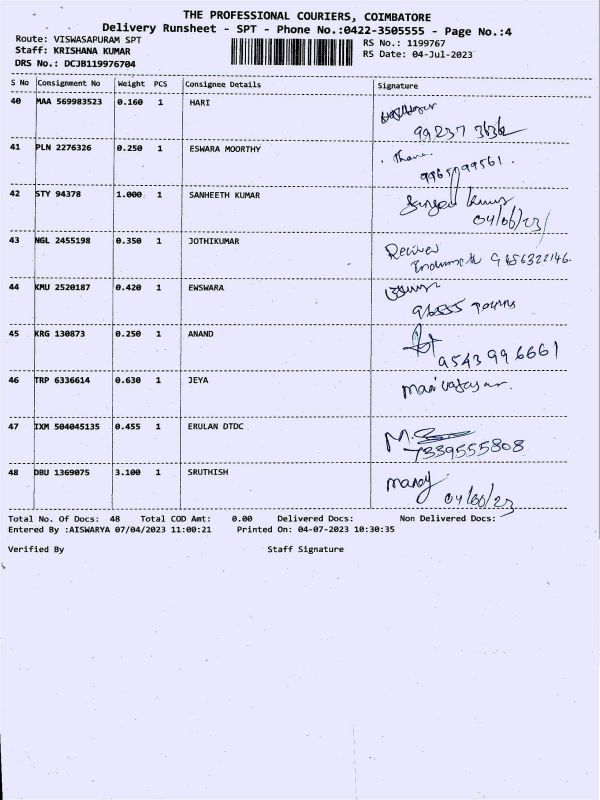 THE PROFESSIONAL COURIERS, COIMBATORE
Delivery Runsheet - SPT - Phone No.:0422-3505555 - Page No.:4
Route: VISWASAPURAM SPT
RS No.: 1199767
Staff: KRISHANA KUMAR
RS Date: 04-Jul-2023
DRS No.: DCJB119976704
S No Consignment No Weight PCS Consignee Details Signature
40 MAA 569983523 0.160 1 HARI
99237 3636
41 PLN 2276326 0.250 1 ESWARA MOORTHY
42 STY 94378 1.000 1 SANHEETH KUMAR
04/06/23/
43 NGL 2455198 0.350 1 JOTHIKUMAR
9456322146
44 KMU 2520187 0.420 1 EWSWARA
45 KRG 130873 0.250 1 ANAND
9543 99 6661
46 TRP 6336614 0.630 1 JEYA
47 IXM 504045135 0.455 1 ERULAN DTDC
7339555808
48 DBU 1369075 3.100 1 SRUTHISH
Total No. Of Docs: 48 Total COD Amt: 0.00 Delivered Docs: Non Delivered Docs:
Entered By :AISWARYA 07/04/2023 11:00:21 Printed On: 04-07-2023 10:30:35
Verified By Staff Signature